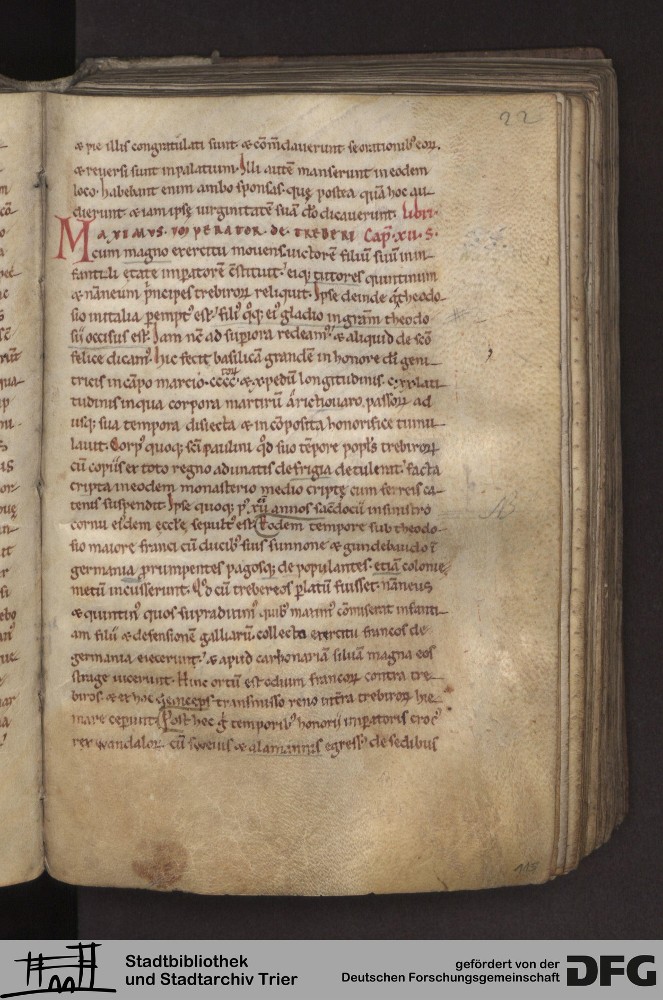 22
& pie illis congratulati sunt. & cōmdauerunt se orationib; eoꝝ.
& reuersi sunt in palatium. Illi autē manserunt in eodem
loco. habebant enim ambo sponsas. quę postea quā hoc au-
dierunt. & iam ipsę uirginitatē suā dō dicauerunt. libri.
MAXIMVS. IMPERATOR. DE. TREBERI Cap. xii. S.
cum magno exercitu mouens. uictorē filiū suū in in-
fantuli ętate imꝑatorē cstituit. eiq; tutores quintinum
& nāneum pncipes trebiroꝝ reliquit. Ipse deinde a theodo-
sio in italia ꝑempt' est. fili' qq; ei' gladio in grām theodo-
sii occisus est. Iam nc ad supiora redeam'. & aliquid de scō
felice dicam'. hic fecit basilicā grandē in honore di geni-
tricis in cāpo marcio. cccc & xx pedū longitudinis. cxx lati-
tudinis in qua corpora martirū a rictiouaro passoꝝ ad
usq; sua tempora disiecta & incōposita honorifice tumu-
lauit. Corp' quoq; sci paulini qd suo tēpore popls trebiroꝝ
cū copiis ex toto regno adunatis de frigia detulerat. facta
cripta in eodem monasterio medio criptę cum ferreis ca-
tenis suspendit. Ipse quoq; p' xii annos sacdocii in sinistro
cornu eidem eccle sepult' est. Eodem tempore sub theodo-
sio maiore franci cū ducib; suis sunnone & gundebaudo ī
germania prumpentes pagosq; depopulantes. etiā colonię
metū incusserunt. Qd cū trebereos platū fuisset. nāneus
& quintin' quos supradixim' quib; maxim' cōmiserat infanti-
am filii & defensionē galliarū. collecto exercitu francos de
germania eiecerunt. & apud carbonariā siluā magna eos
strage uicerunt. Hinc ortū est odium francoꝝ contra tre-
biros. & ex hoc deinceps transmisso reno intra trebiroꝝ hie-
mare ceperunt. Post hec g temporib; honorii imꝑatoris croc'
rex wandaloꝝ cū sweuis & alamannis egress' de sedibus
115
Stadtbibliothek
und Stadtarchiv Trier
gefördert von der
Deutschen Forschungsgemeinschaft
DFG